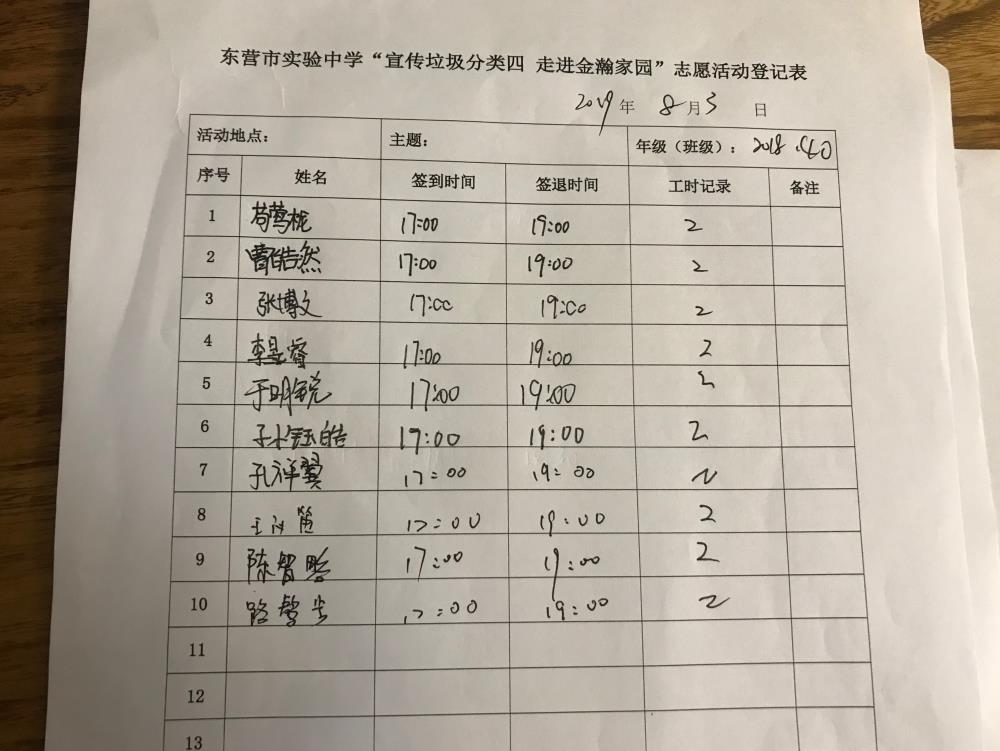 东营市实验中学“宣传垃圾分类四 走进金瀚家园”志愿活动登记表
2019 年 8 月 3 日
活动地点： 主题： 年级（班级）： 2018 .
序号 姓名 签到时间 签退时间 工时记录 备注
1 苟莺栊 17:00 19:00 2
2 曹皓然 17:00 19:00 2
3 张博文 17:00 19:00 2
4 李昱睿 17:00 19:00 2
5 于明锐 17:00 19:00 2
6 钰皓 17:00 19:00 2
7 孔祥翼 17:00 19:00 2
8 王 17:00 19:00 2
9 陈智 17:00 19:00 2
10 路 17:00 19:00 2
11
12
13